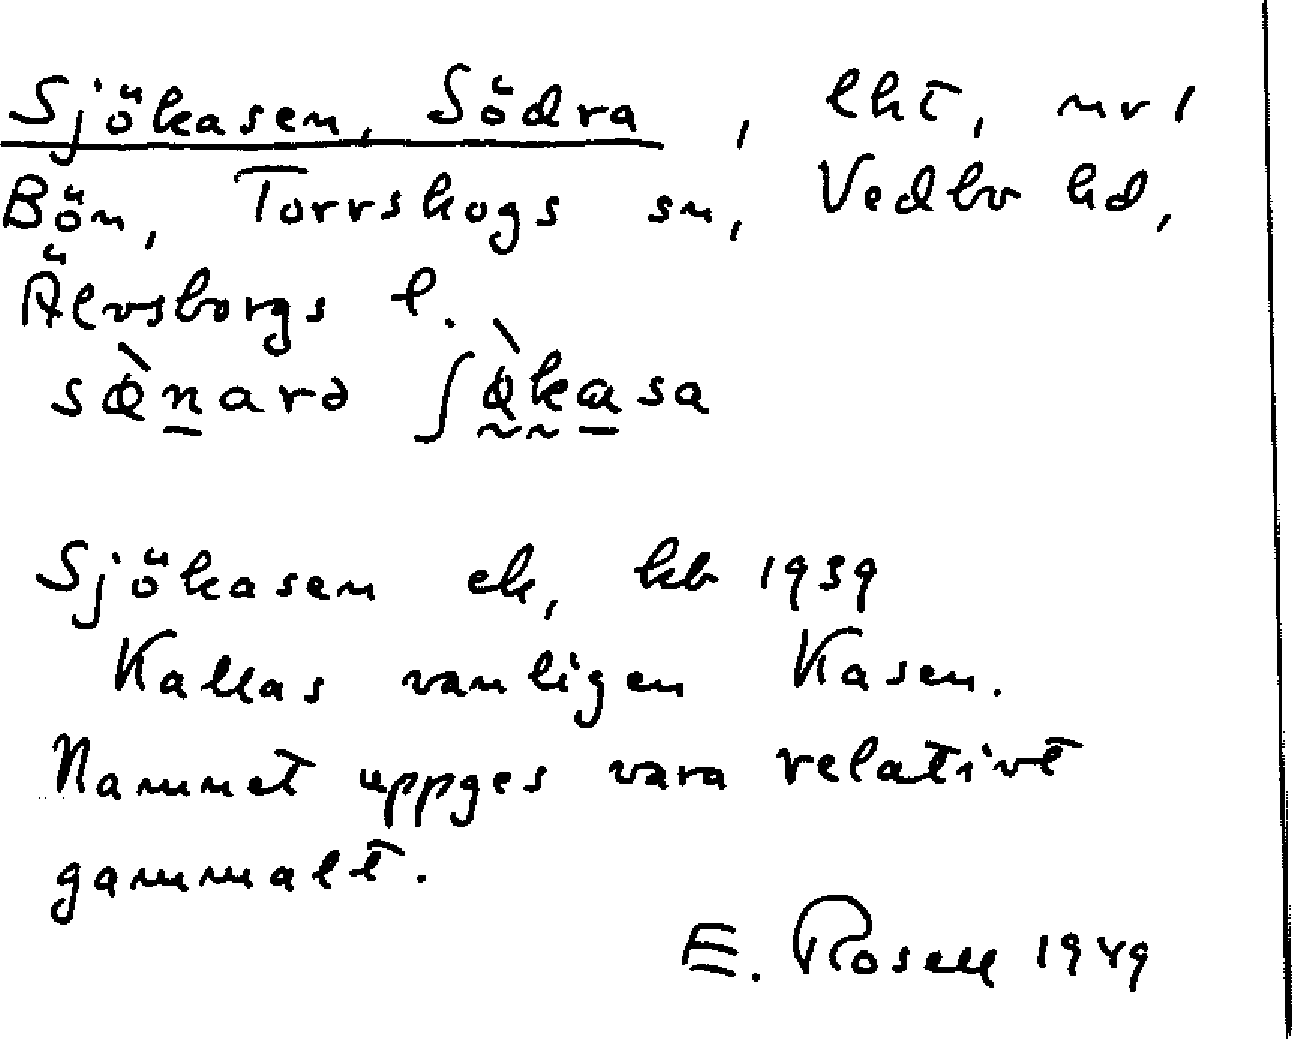 Sjökasen, Södra, lht, nr 1
Bön, Torrskogs sn, Vedbo hd,
Älvsborgs l.
Sjökasen ek, kb 1939
Kallas vanligen Kasen.
Namnet uppges vara relativt
gammalt.
E. Rosell 1949